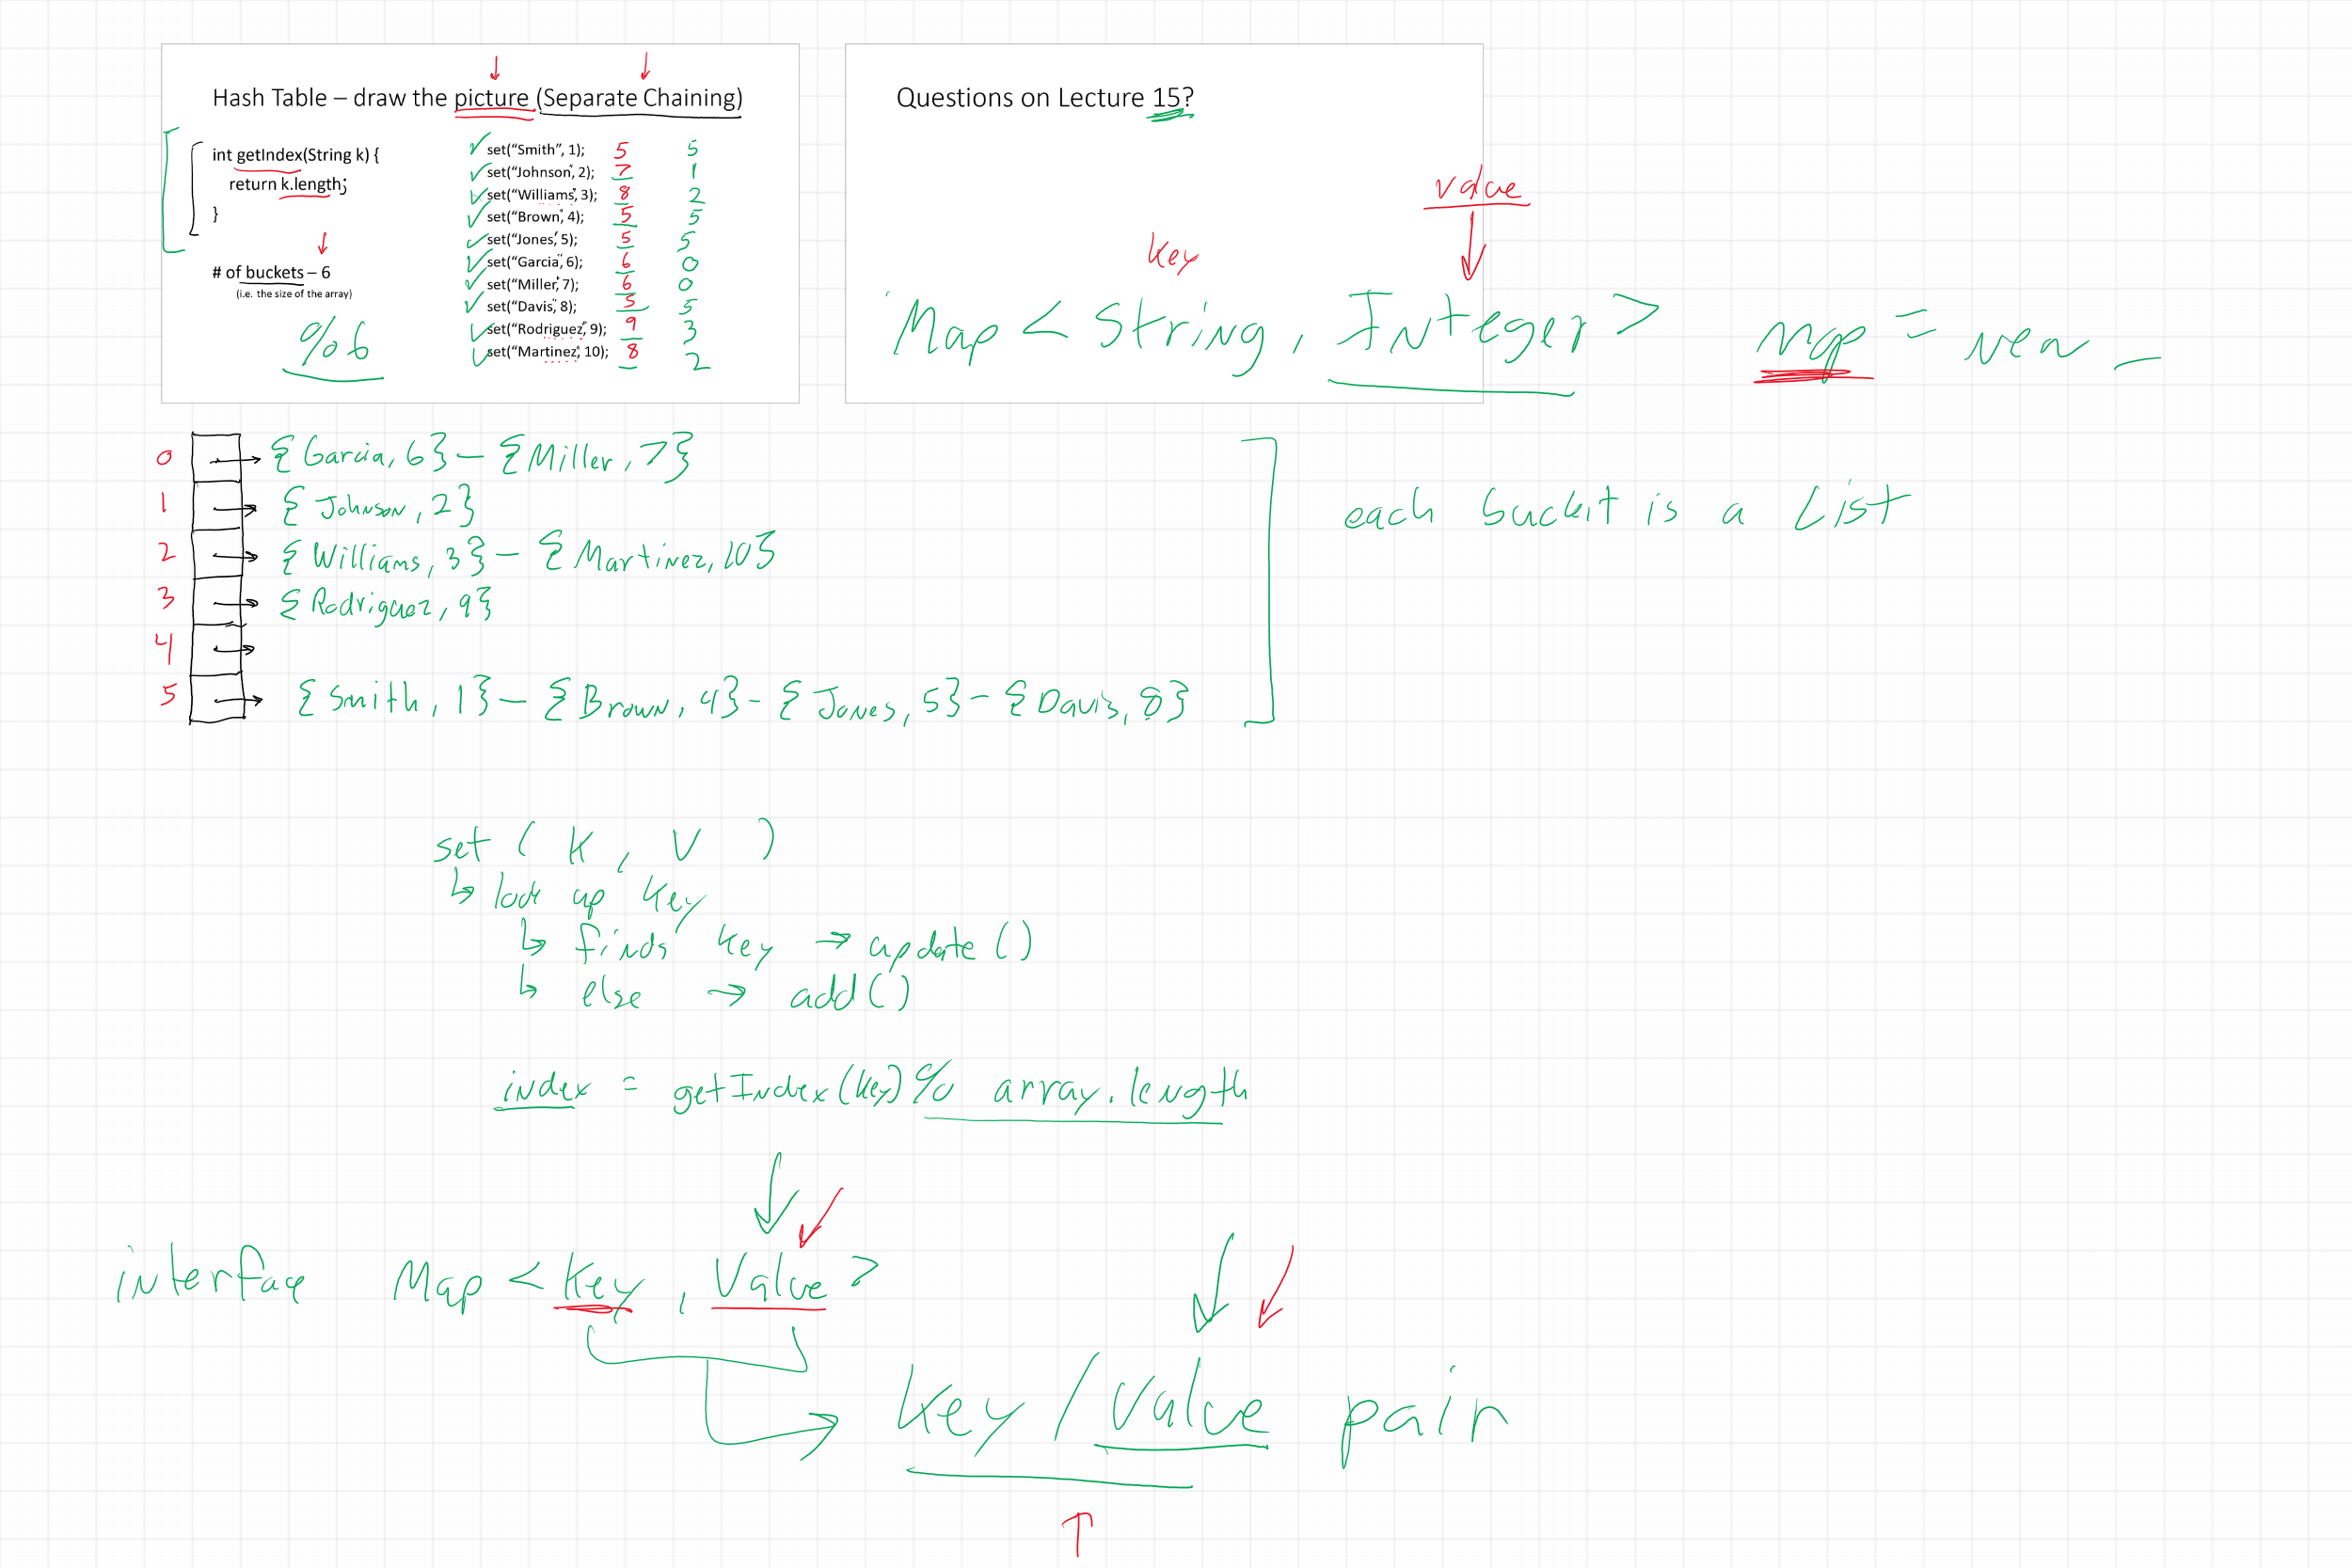 Hash Table – draw the picture (Separate Chaining)
int getIndex(String k) {
return k.length;
}
# of buckets – 6
(i.e. the size of the array)
% 6
set("Smith", 1); 5 5
set("Johnson", 2); 7 1
set("Williams", 3); 8 2
set("Brown", 4); 5 5
set("Jones", 5); 5 5
set("Garcia", 6); 6 0
set("Miller", 7); 6 0
set("Davis", 8); 5 5
set("Rodriguez", 9); 9 3
set("Martinez", 10); 8 2
Questions on Lecture 15?
value
key
Map < String, Integer > map = new _
0 → {Garcia, 6} – {Miller, 7}
1 → {Johnson, 2}
2 → {Williams, 3} – {Martinez, 10}
3 → {Rodriguez, 9}
4 →
5 → {Smith, 1} – {Brown, 4} - {Jones, 5} – {Davis, 8}
each bucket is a List
set ( K, V )
↳ look up key
↳ finds key → update()
↳ else → add()
index = getIndex(key) % array.length
interface Map < Key, Value >
key / value pair